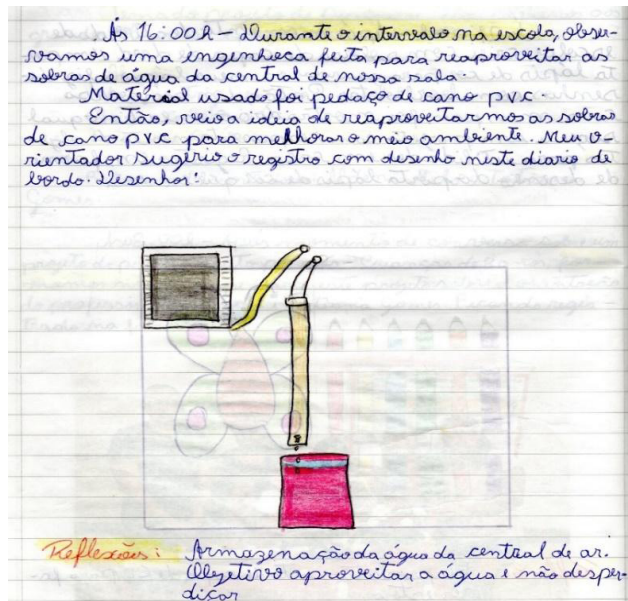 Às 16:00h - Durante o intervalo na escola, obser-
vamos uma engenhoca feita para reaproveitar as
sobras de água da central de nossa sala.
Material usado foi pedaço de cano pvc.
Então, veio a ideia de reaproveitarmos as sobras
de cano pvc para melhorar o meio ambiente. Meu o-
rientador sugerio o registro com desenho neste diario de
bordo. Desenhor:
Reflexões: Armazenação da água da central de ar.
Objetivo aproveitar a água e não desper-
diçar